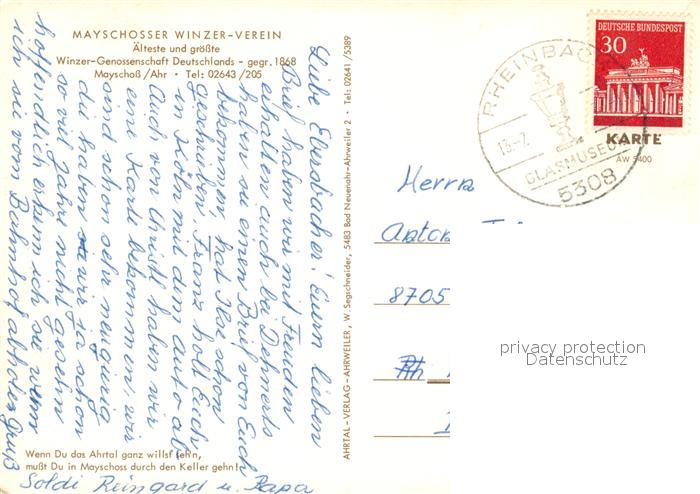 MAYSCHOSSER WINZER-VEREIN
Älteste und größte
Winzer-Genossenschaft Deutschlands - gegr. 1868
Mayschoß/Ahr • Tel: 02643/205
Liebe Ebersbacher! Euern lieben
Brief haben wir mit Freuden
erhalten auch bei Dehmerts
haben sie einen Brief von Euch
bekommen, hat Ilse schon
geschrieben, Franz holt Euch
in Köln mit dem Auto ab
Auch von Christl haben wir
eine Karte bekommen, wir
sind schon sehr neugierig
die haben wir ja schon
so viel Jahre nicht gesehn
hoffendlich erkenn ich sie wenn
ich sie vom Bahnhof abhole. Gruß
Soldi Reingard u. Papa
Wenn Du das Ahrtal ganz willst seh'n,
mußt Du in Mayschoss durch den Keller gehn!
AHRTAL-VERLAG-AHRWEILER, W. Segschneider, 5483 Bad Neuenahr-Ahrweiler 2 • Tel: 02641/5389
DEUTSCHE BUNDESPOST
30
RHEINBACH
13.-7.
GLASMUSEUM
5308
KARTE
AW 5400
Herrn
Anton
8705
privacy protection
Datenschutz